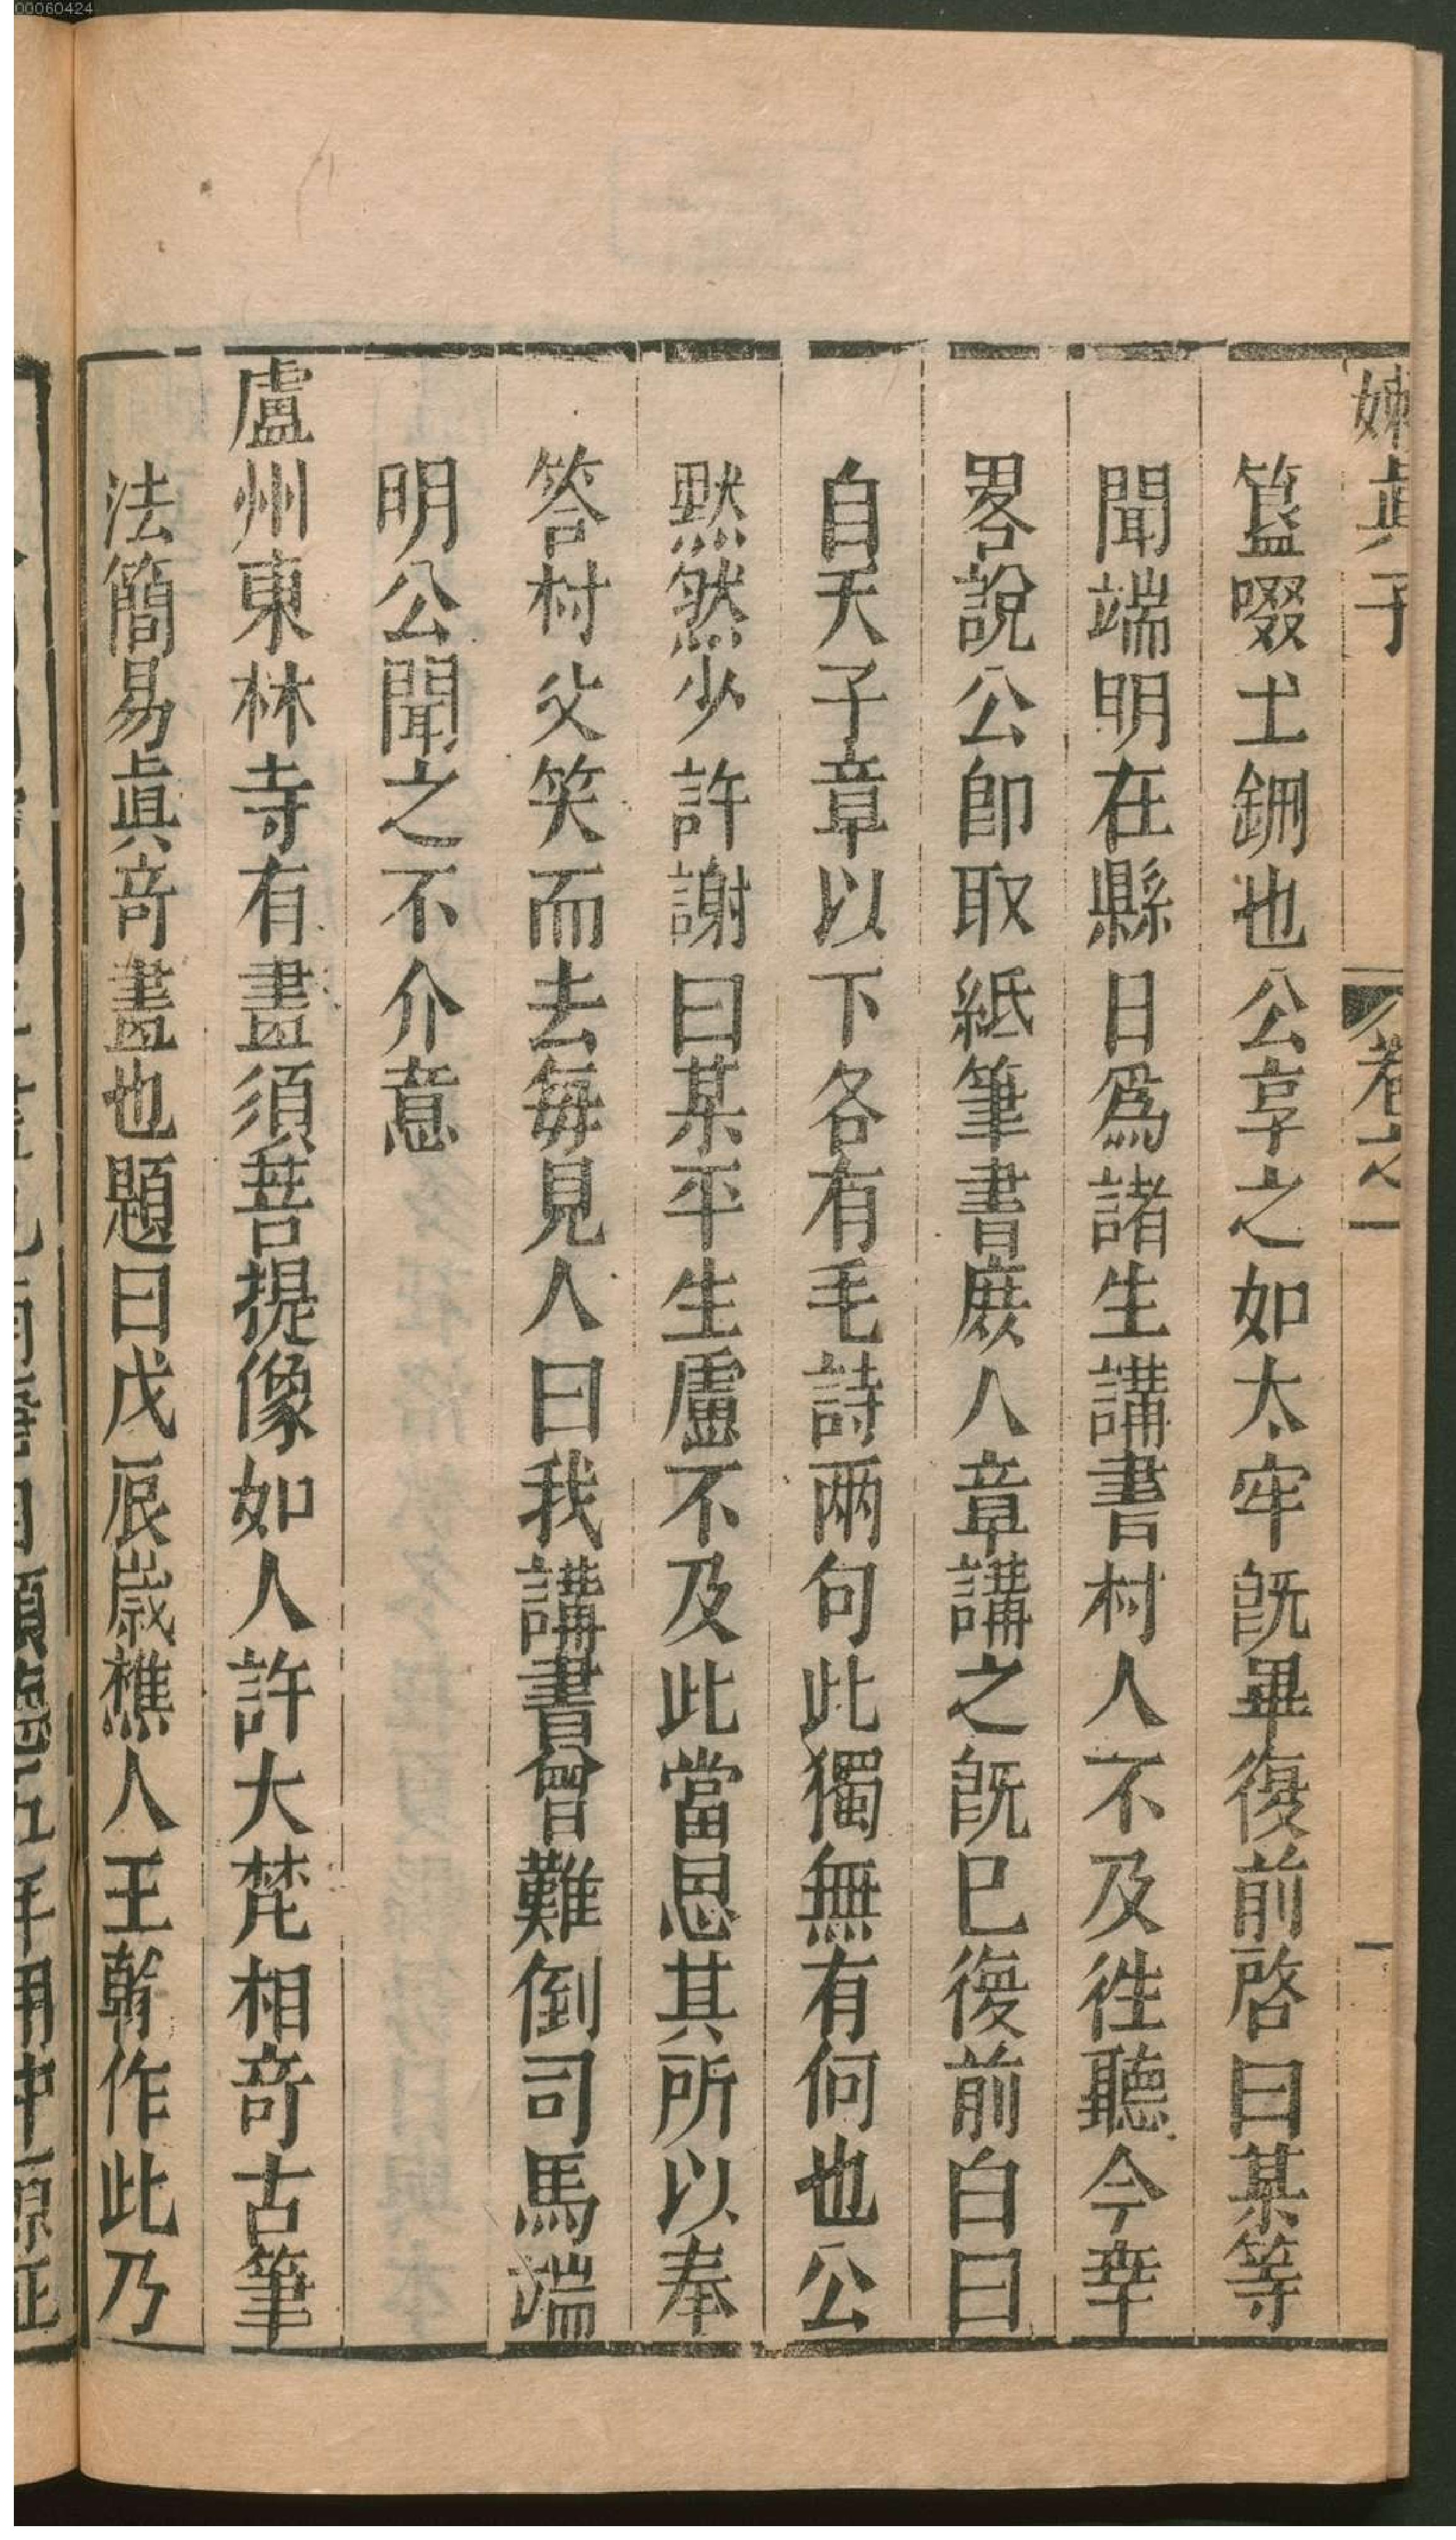 00060424
嬾眞子 卷之一 一
簋啜土鉶也公享之如太牢旣畢復前啓曰某等
聞端明在縣日爲諸生講書村人不及徃聽今幸
畧說公卽取紙筆書庶人章講之旣已復前白曰
自天子章以下各有毛詩兩句此獨無有何也公
默然少許謝曰某平生慮不及此當思其所以奉
答村父笑而去每見人曰我講書曾難倒司馬端
明公聞之不介意
盧州東林寺有畫須菩提像如人許大梵相竒古筆
法簡易眞竒畫也題曰戊辰歲樵人王翰作此乃